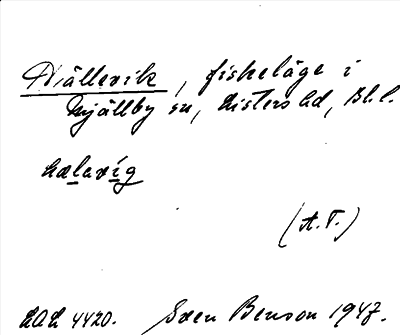 Hällevik, fiskeläge i
Mjällby sn, Listers hd, Bl. l.
hælavig
(A.T.)
LAL 4420. Sven Benson 1947.